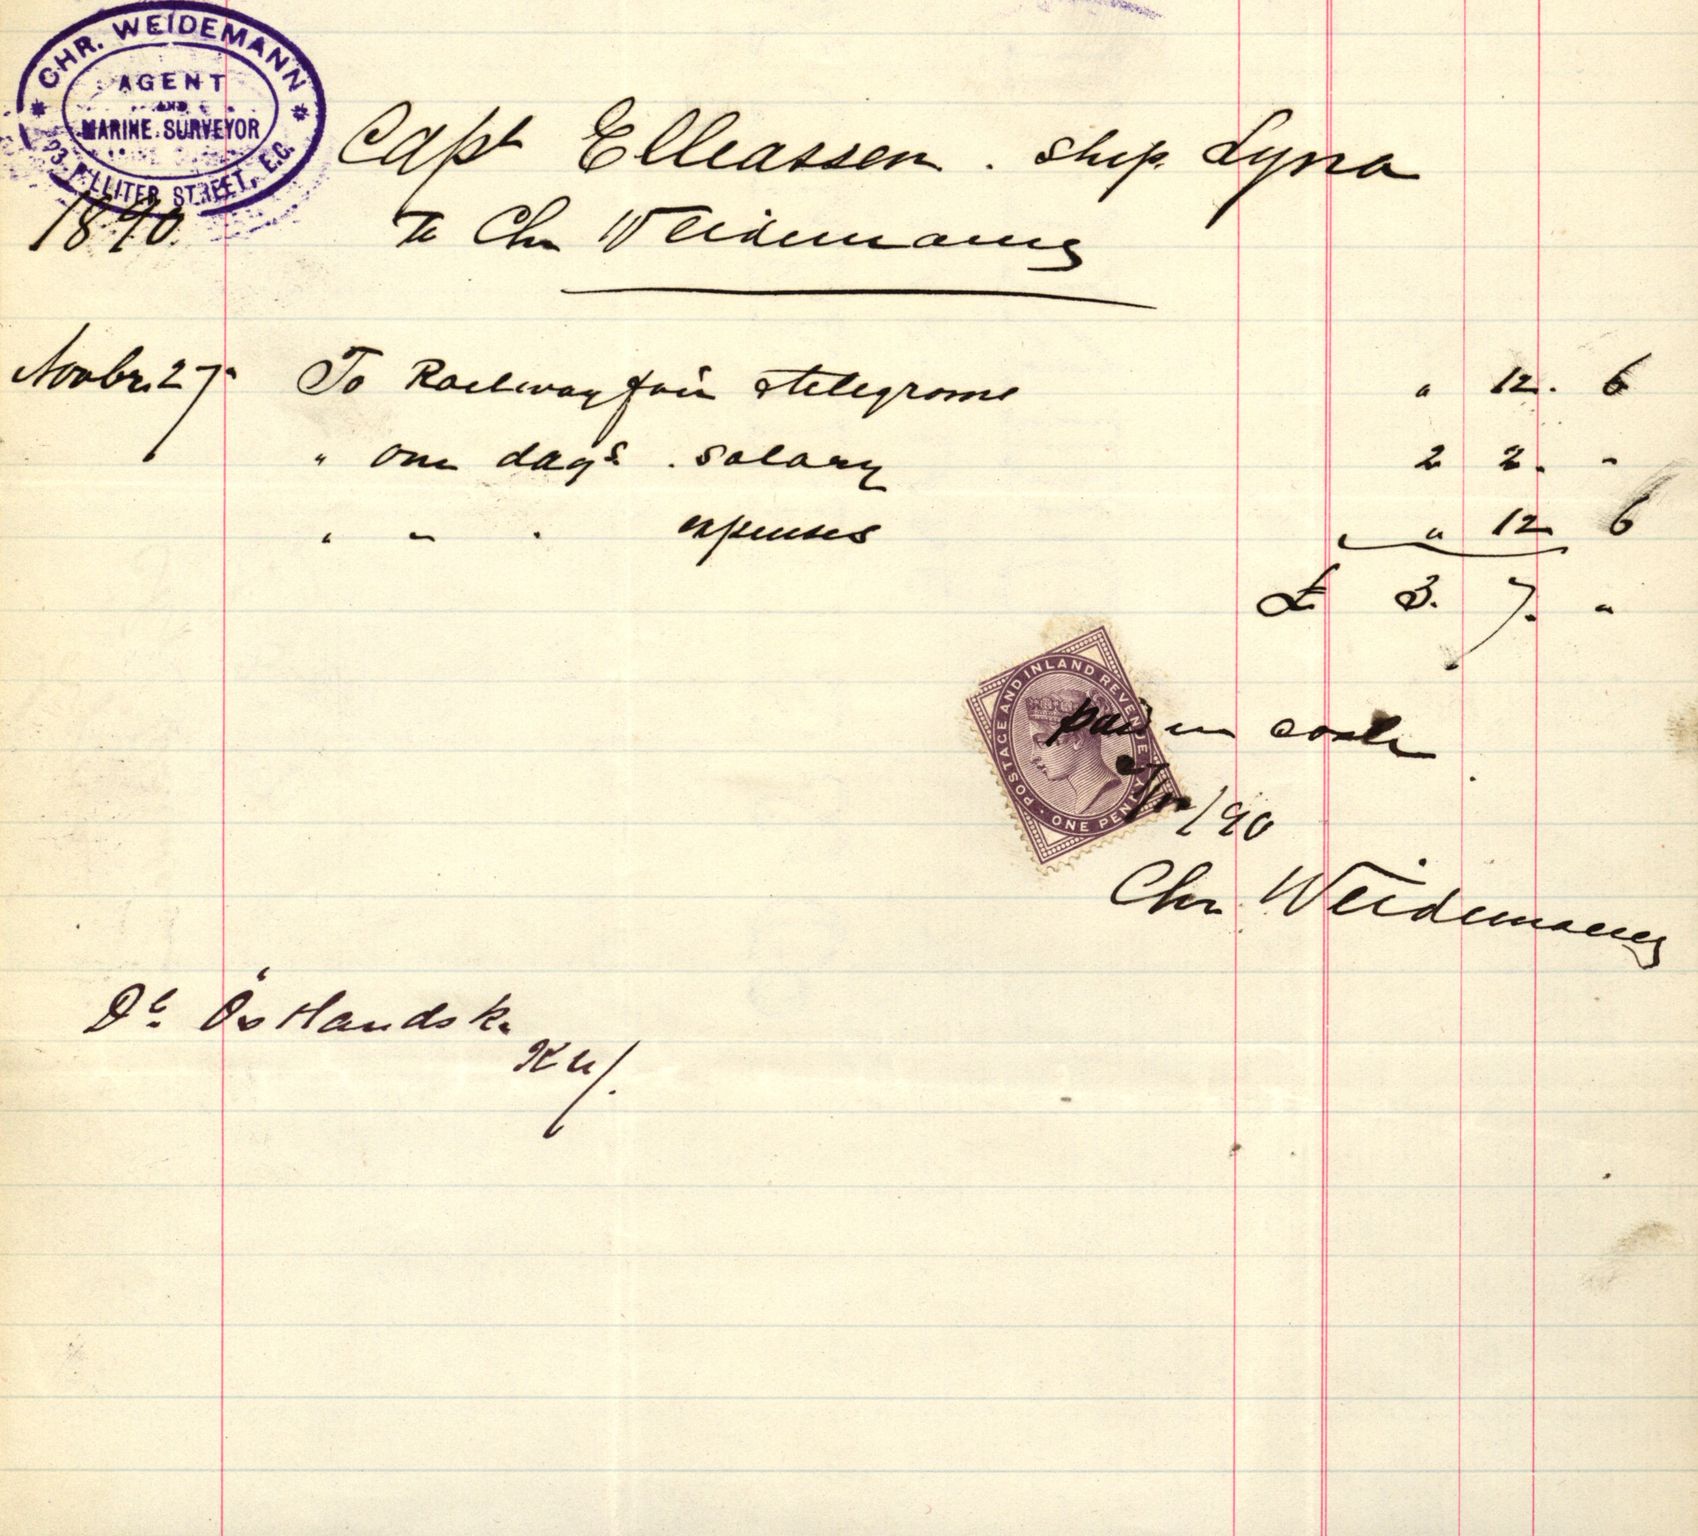 CHR. WEIDEMANN
AGENT
AND
MARINE SURVEYOR
23 BILLITER STREET, E.C.
Capt Elleassen . ship Lyna
1890. To Chr Weidemann
Novbr. 27 To Railway fair telegrams " 12. 6
" one days . salary 2 2. "
" " " expenses " 12 6
£ 3. 7. "
POSTAGE AND INLAND REVENUE
ONE PENNY
paid in cash
27/11/90
Chr. Weidemann